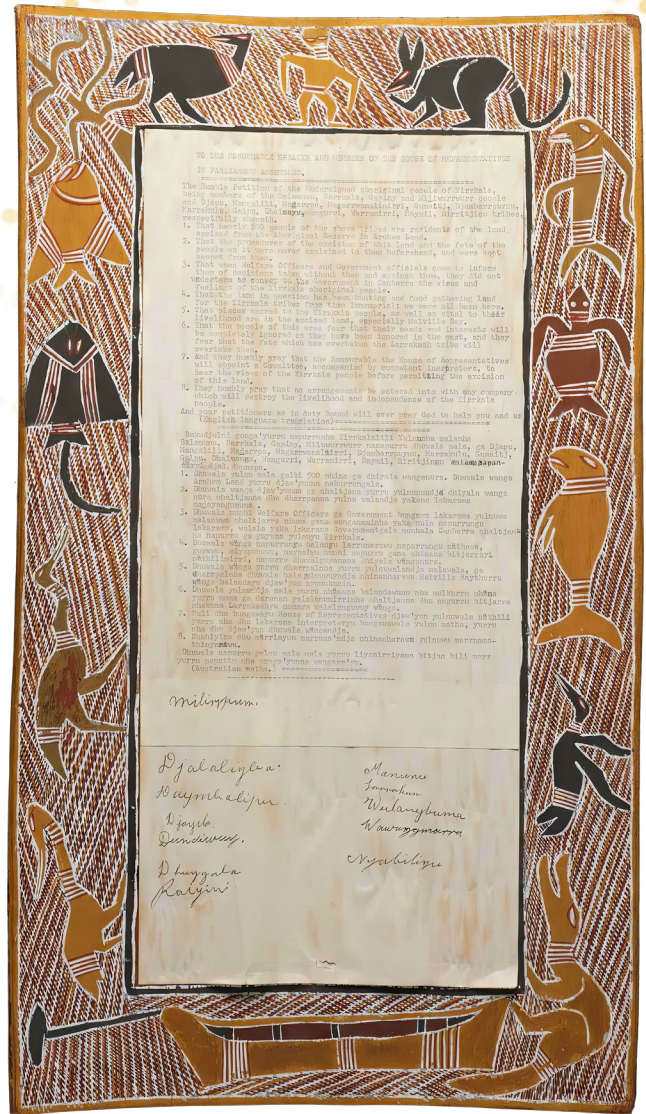 TO THE HONOURABLE SPEAKER AND MEMBERS OF THE HOUSE OF REPRESENTATIVES
IN PARLIAMENT ASSEMBLED.
The Humble Petition of the Undersigned aboriginal people of Yirrkala,
being members of the Balamumu, Narrkala, Gapiny and Miliwurrwurr people
and Djapu, Mangalili, Madarrpa, Magarrwanalinirri, Gumaitj, Djambarrpuynu,
Marrakulu, Galpu, Dhaluayu, Wangurri, Warramirri, Naymil, Riritjingu tribes,
respectfully showeth,
1. That nearly 500 people of the above tribes are residents of the land
excised from the Aboriginal Reserve in Arnhem Land.
2. That the procedures of the excision of this land and the fate of the
people on it were never explained to them beforehand, and were kept
secret from them.
3. That when Welfare Officers and Government officials came to inform
them of decisions taken without them and against them, they did not
undertake to convey to the Government in Canberra the views and
feelings of the Yirrkala aboriginal people.
4. That the land in question has been hunting and food gathering land
for the Yirrkala tribes from time immemorial; we were all born here.
5. That places sacred to the Yirrkala people, as well as vital to their
livelihood are in the excised land, especially Melville Bay.
6. That the people of this area fear that their needs and interests will
be completely ignored as they have been ignored in the past, and they
fear that the fate which has overtaken the Larrakeah tribe will
overtake them.
7. And they humbly pray that the Honourable the House of Representatives
will appoint a Committee, accompanied by competent interpreters, to
hear the views of the Yirrkala people before permitting the excision
of this land.
8. They humbly pray that no arrangements be entered into with any company
which will destroy the livelihood and independence of the Yirrkala
people.
And your petitioners as in duty bound will ever pray God to help you and us
(English language translation)
Bukudjulni gonga'yurru napurrunha Yirrkalalili Yulnunha malanha
Balamumu, Narrkala, Gapiny, Miliwurrwurr nanapurru dhuwala mala, ga Djapu,
Mangalili, Madarrpa, Magarrwanalinirri, Djambarrpuynu, Marrakulu, Gumaitj,
Galpu, Dhaluangu, Wangurri, Warramirri, Naymil, Riritjingu
1. Dhuwala yulnu mala galki 500 nhina ga dhiyala wanganura. Dhuwala wanga
Arnhem Land yurru djaw'yunna naburrungala.
2. Dhuwala wanga djaw'yunna ga nhaltjana yurru yulnungunydja dhiyala wanga
nura nhaltjanna dhu dharrpanna yulnu walandja yakana lakarama
madayangumuna.
3. Dhuwala nunhi Welfare Officers ga Government bungawa lakarama yulnuwa
malanuwa nhaltjarra nhuma gana wanganaminha yaka nula napurrungu
lakarama, walala yaka lakarama Governmentgala nunhala Canberra nhaltjan
4. Dhuwala wanga napurrungu balanu larrunarawu napurrungu nathawa,
5. Dhuwala wanga yurru dharpalnha yurru yulnuwalandja malawala, ga
7. Nuli dhu bungawayu House of Representatives djaw'yun yulnuwala nathili
yurru nha dhu lakarama interpreteryu bungawawala yulnu matha, yurru
nha dhu djaw'yun dhuwala wangandja.
Dhuwala napurru yulnu mala yurru liyamirriyama bitjan bili marr
yurru napurru nha gonga'yunna wangarr'yu.
(Australian matha.)
Milirrpum.
Djalalingba: Manunu
Daymbalipu Larrakan
Djayila Wulanybuma
Dundiwuy. Wawunymarra
Dhuygala Nyabilingu
Raiyin